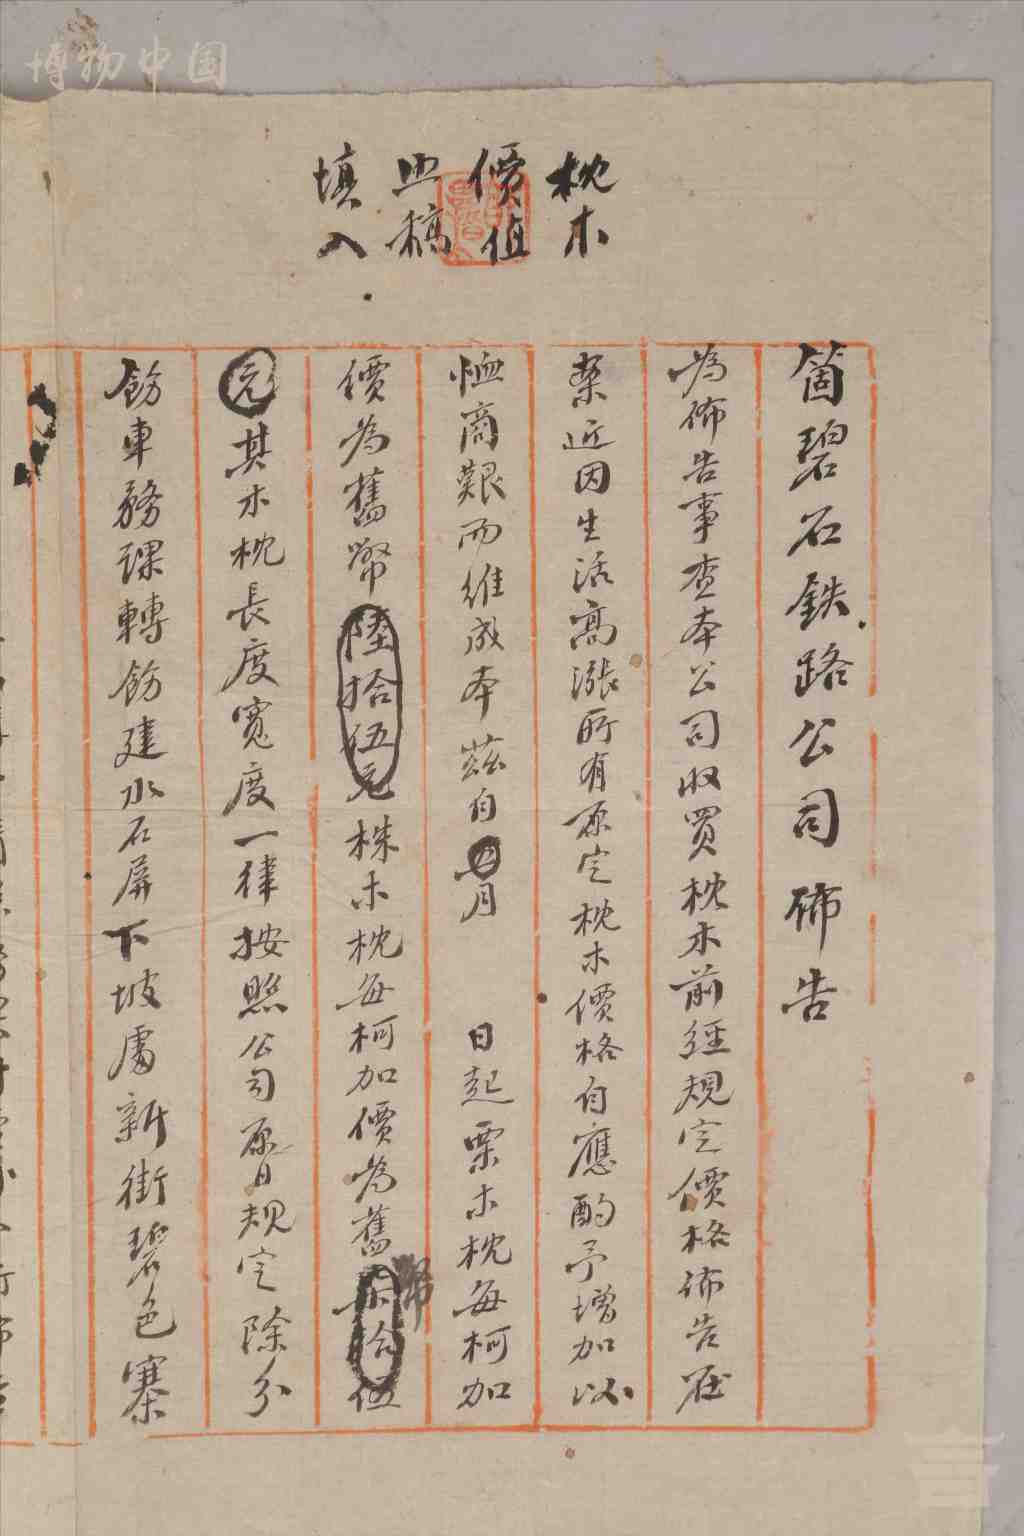 博物中国
枕木
價值
照稿
填入
箇碧石鉄路公司佈告
為佈告事查本公司收買枕木前經規定價格佈告在
案近因生活高漲所有原定枕木價格自應酌予增加以
恤商艱而維成本茲自四月 日起栗木枕每柯加
價為舊幣陸拾伍元株木枕每柯加價為舊幣拾伍
元其木枕長度寬度一律按照公司原日規定除分
飭車務課轉飭建水石屏下坡處新街碧色寨